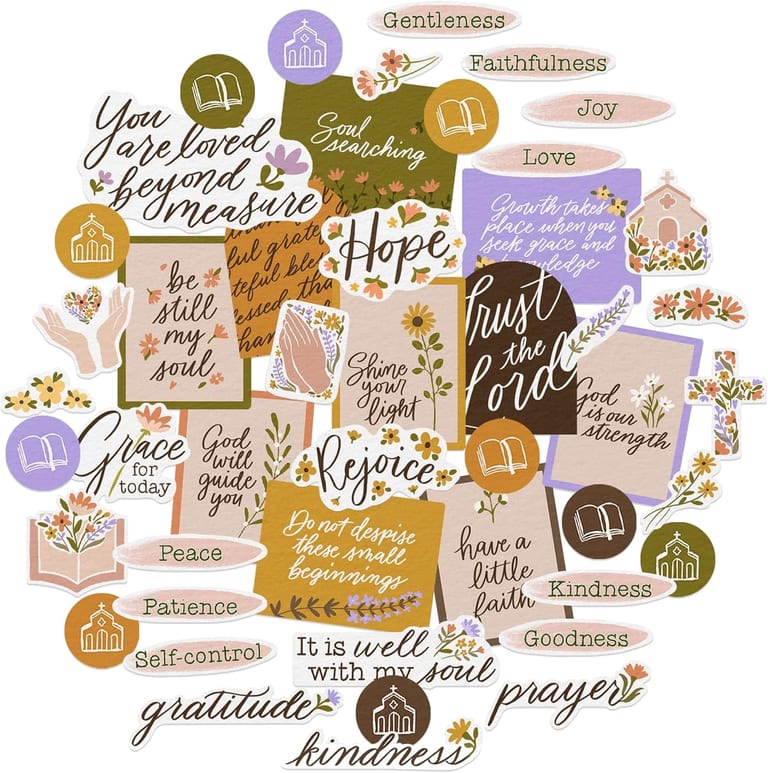 Gentleness
Faithfulness
Joy
Love
You
are loved
beyond
measure
Soul
searching
Growth takes
place when you
seek grace and
knowledge
Hope
ful grate
teful ble
essed tha
be
still
my
soul
Shine
your
light
Trust
the
Lord
God
is our
strength
Grace
for
today
God
will
guide
you
Rejoice
Do not despise
these small
beginnings
have a
little
faith
Peace
Patience
Self-control
Kindness
Goodness
It is well
with my soul
gratitude
prayer
kindness